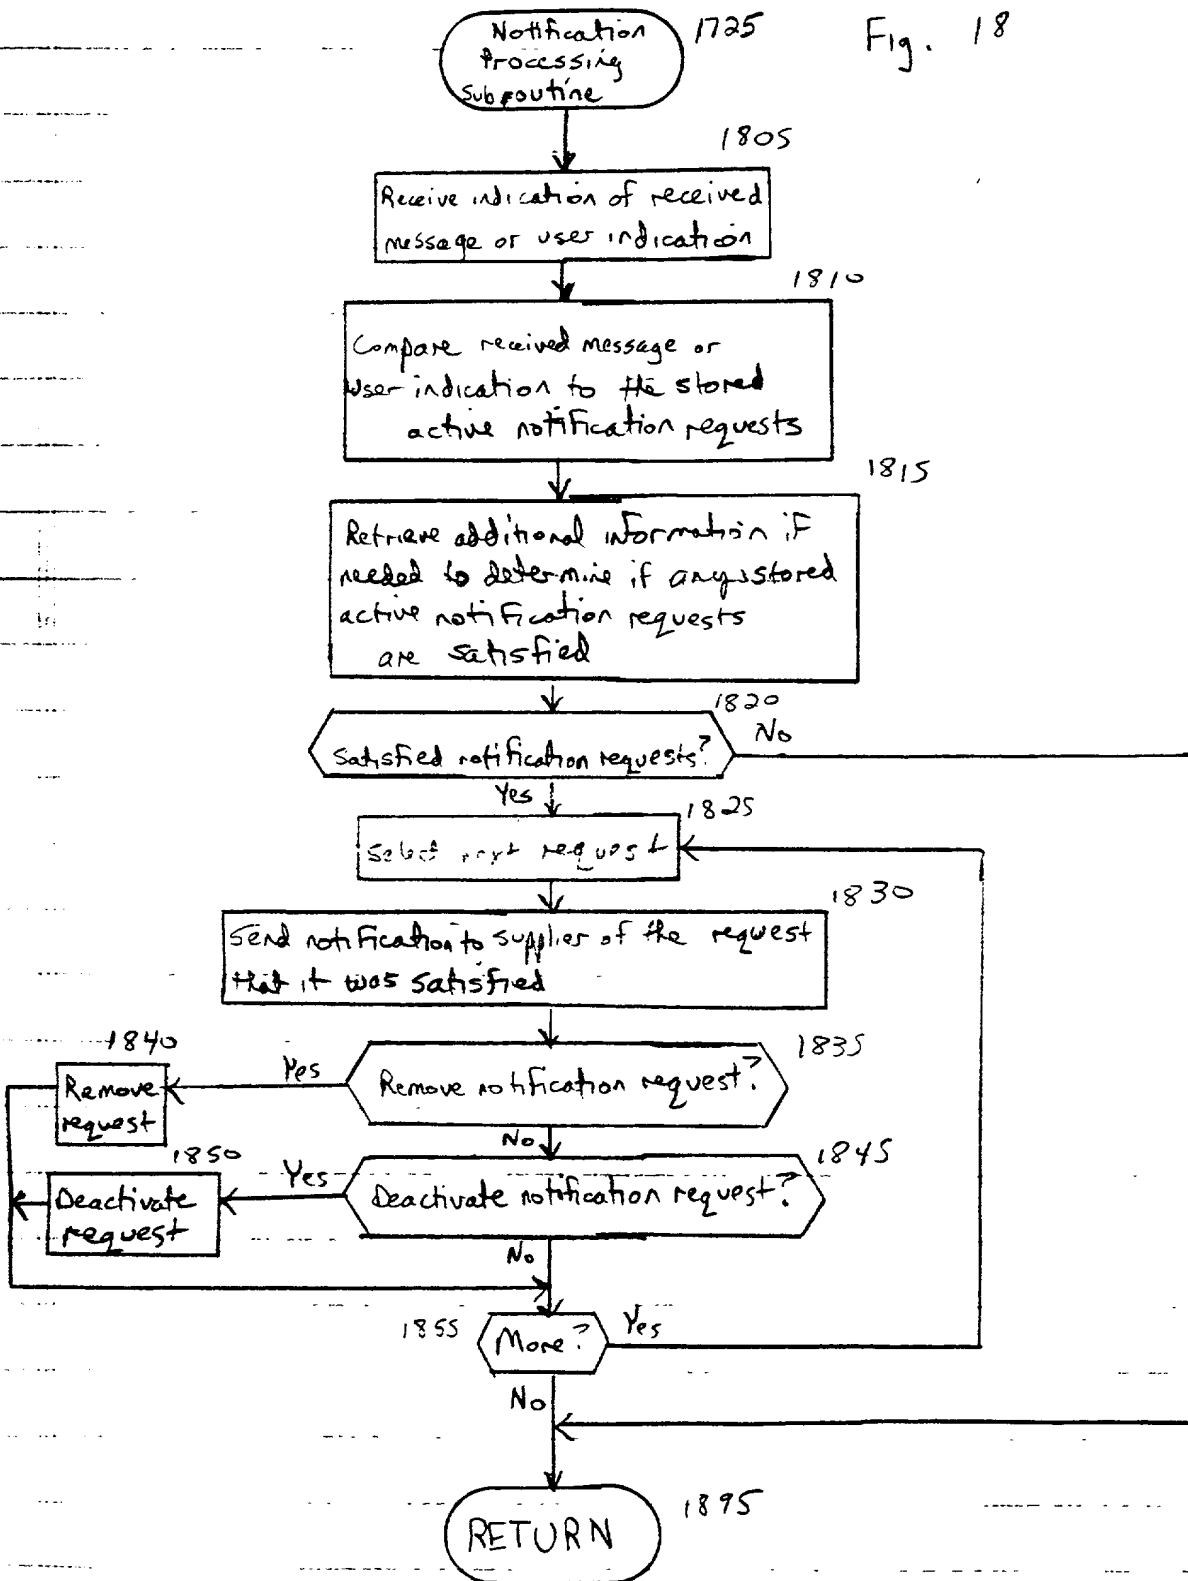 Notification
Processing
Subroutine
1725
Fig. 18
1805
Receive indication of received
message or user indication
1810
Compare received message or
User indication to the stored
active notification requests
1815
Retrieve additional information if
needed to determine if any stored
active notification requests
are satisfied
1820
Satisfied notification requests?
No
Yes
1825
Select next request
1830
Send notification to supplier of the request
that it was satisfied
1835
Remove notification request?
Yes
1840
Remove
request
No
1845
Deactivate notification request?
Yes
1850
Deactivate
request
No
1855
More?
Yes
No
1895
RETURN